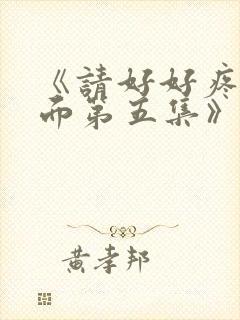 《請好好疼
而第五集》
黄孝邦